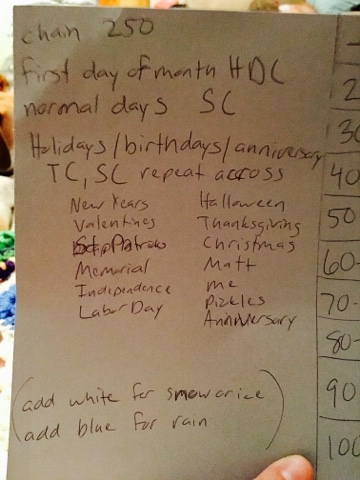 chain 250
first day of month HDC
normal days SC
Holidays/birthdays/anniversary
TC, SC repeat across
New Years
Valentines
St. Patricks
Memorial
Independence
Labor Day
Halloween
Thanksgiving
Christmas
Matt
me
Pickles
Anniversary
(add white for snow or ice
add blue for rain)
2
30
40
50
60-
70-
80-
90
100